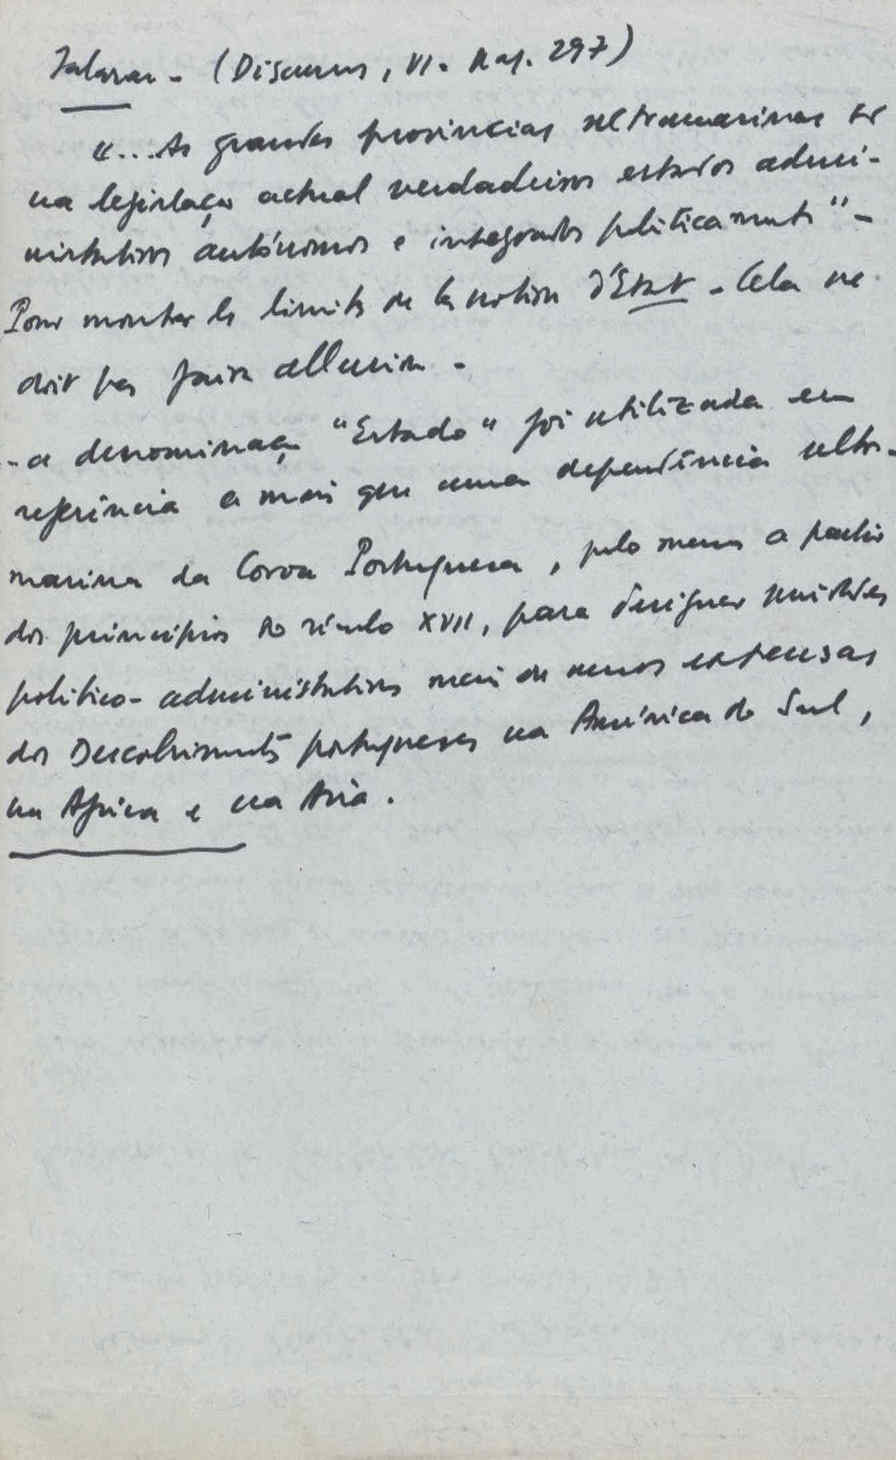 Salazar - (Discursos, VI. Pag. 297)
"... As grandes províncias ultramarinas
na legislação actual verdadeiros estados admi-
nistrativos autónomos e integrados politicamente" -
Pour montrer les limites de la notion d'Etat - Cela ne
doit pas faire allusion -
- a denominação "Estado" foi utilizada em
referência a mais que uma dependência ultra-
marina da Coroa Portuguesa, pelo menos a partir
dos princípios do século XVII, para designar unidades
político-administrativas mais ou menos extensas
dos Descobrimentos portugueses na América do Sul,
na Africa e na Asia.